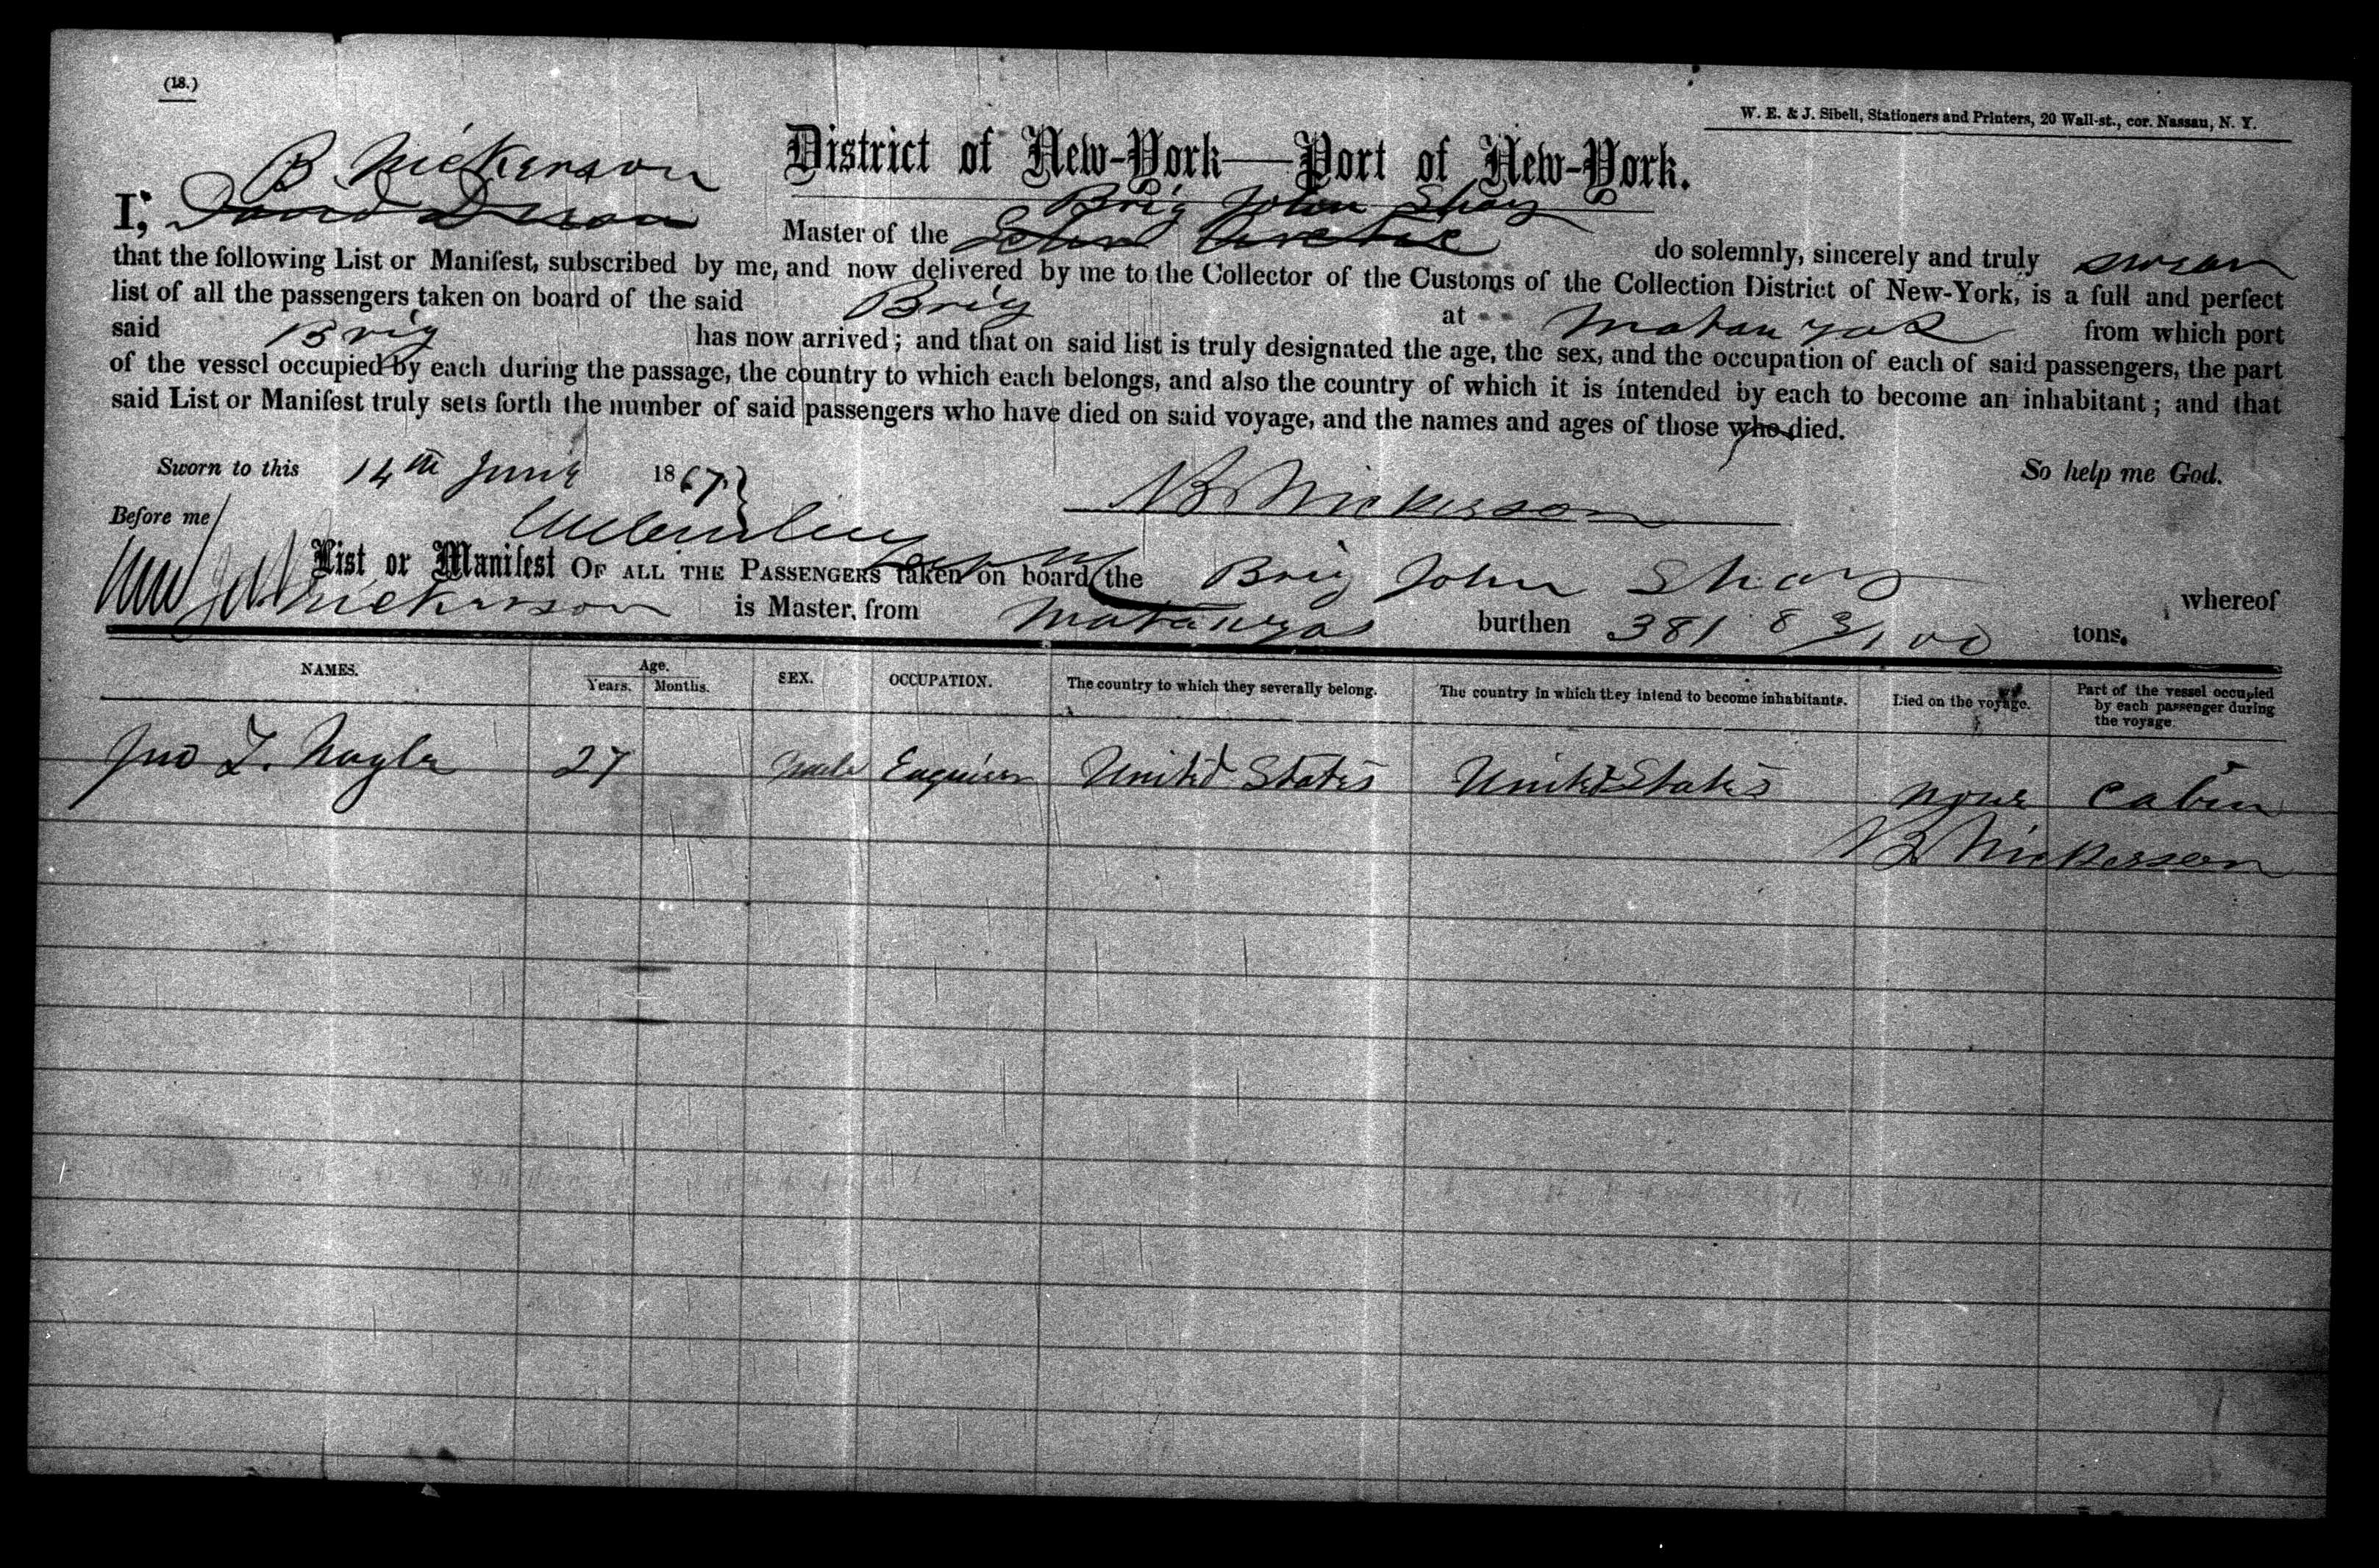 (18.)
W. E. & J. Sibell, Stationers and Printers, 20 Wall-st., cor. Nassau, N. Y.
District of New-York—Port of New-York.
B Nickerson
Brig John Shay
I, David Master of the Schr do solemnly, sincerely and truly swear
that the following List or Manifest, subscribed by me, and now delivered by me to the Collector of the Customs of the Collection District of New-York, is a full and perfect
list of all the passengers taken on board of the said Brig at Matanzas from which port
said Brig has now arrived; and that on said list is truly designated the age, the sex, and the occupation of each of said passengers, the part
of the vessel occupied by each during the passage, the country to which each belongs, and also the country of which it is intended by each to become an inhabitant; and that
said List or Manifest truly sets forth the number of said passengers who have died on said voyage, and the names and ages of those who died.
So help me God.
Sworn to this 14th June 1867.
B Nickerson
Before me
List or Manifest OF ALL THE PASSENGERS taken on board the Brig John Shay whereof
Nickerson is Master, from Matanzas burthen 381 83/100 tons.
NAMES. Age. Years. Months. SEX. OCCUPATION. The country to which they severally belong. The country in which they intend to become inhabitants. Died on the voyage. Part of the vessel occupied by each passenger during the voyage.
Jno Nagle 27 Male Engineer United States United States None Cabin
B Nickerson